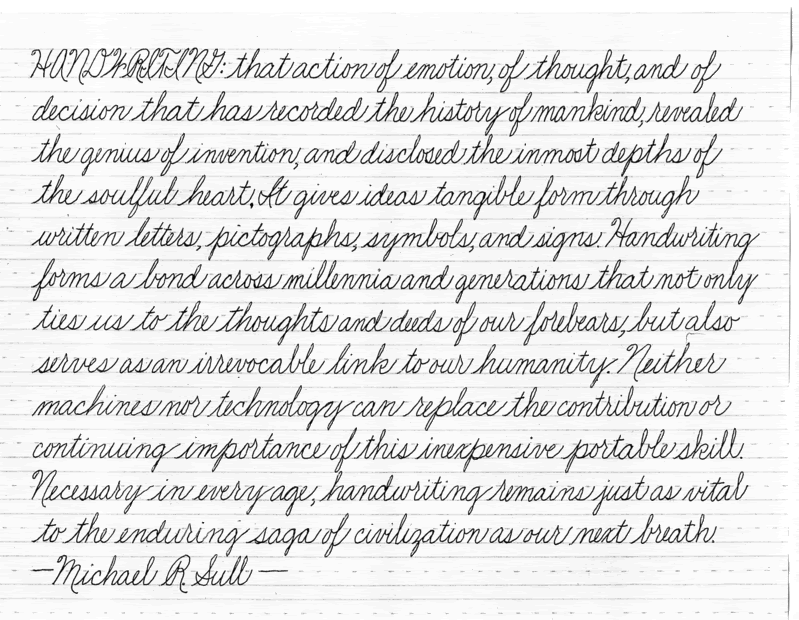 HANDWRITING: that action of emotion, of thought, and of
decision that has recorded the history of mankind, revealed
the genius of invention, and disclosed the inmost depths of
the soulful heart. It gives ideas tangible form through
written letters, pictographs, symbols, and signs. Handwriting
forms a bond across millennia and generations that not only
ties us to the thoughts and deeds of our forebears, but also
serves as an irrevocable link to our humanity. Neither
machines nor technology can replace the contribution or
continuing importance of this inexpensive portable skill.
Necessary in every age, handwriting remains just as vital
to the enduring saga of civilization as our next breath.
—Michael R. Sull—